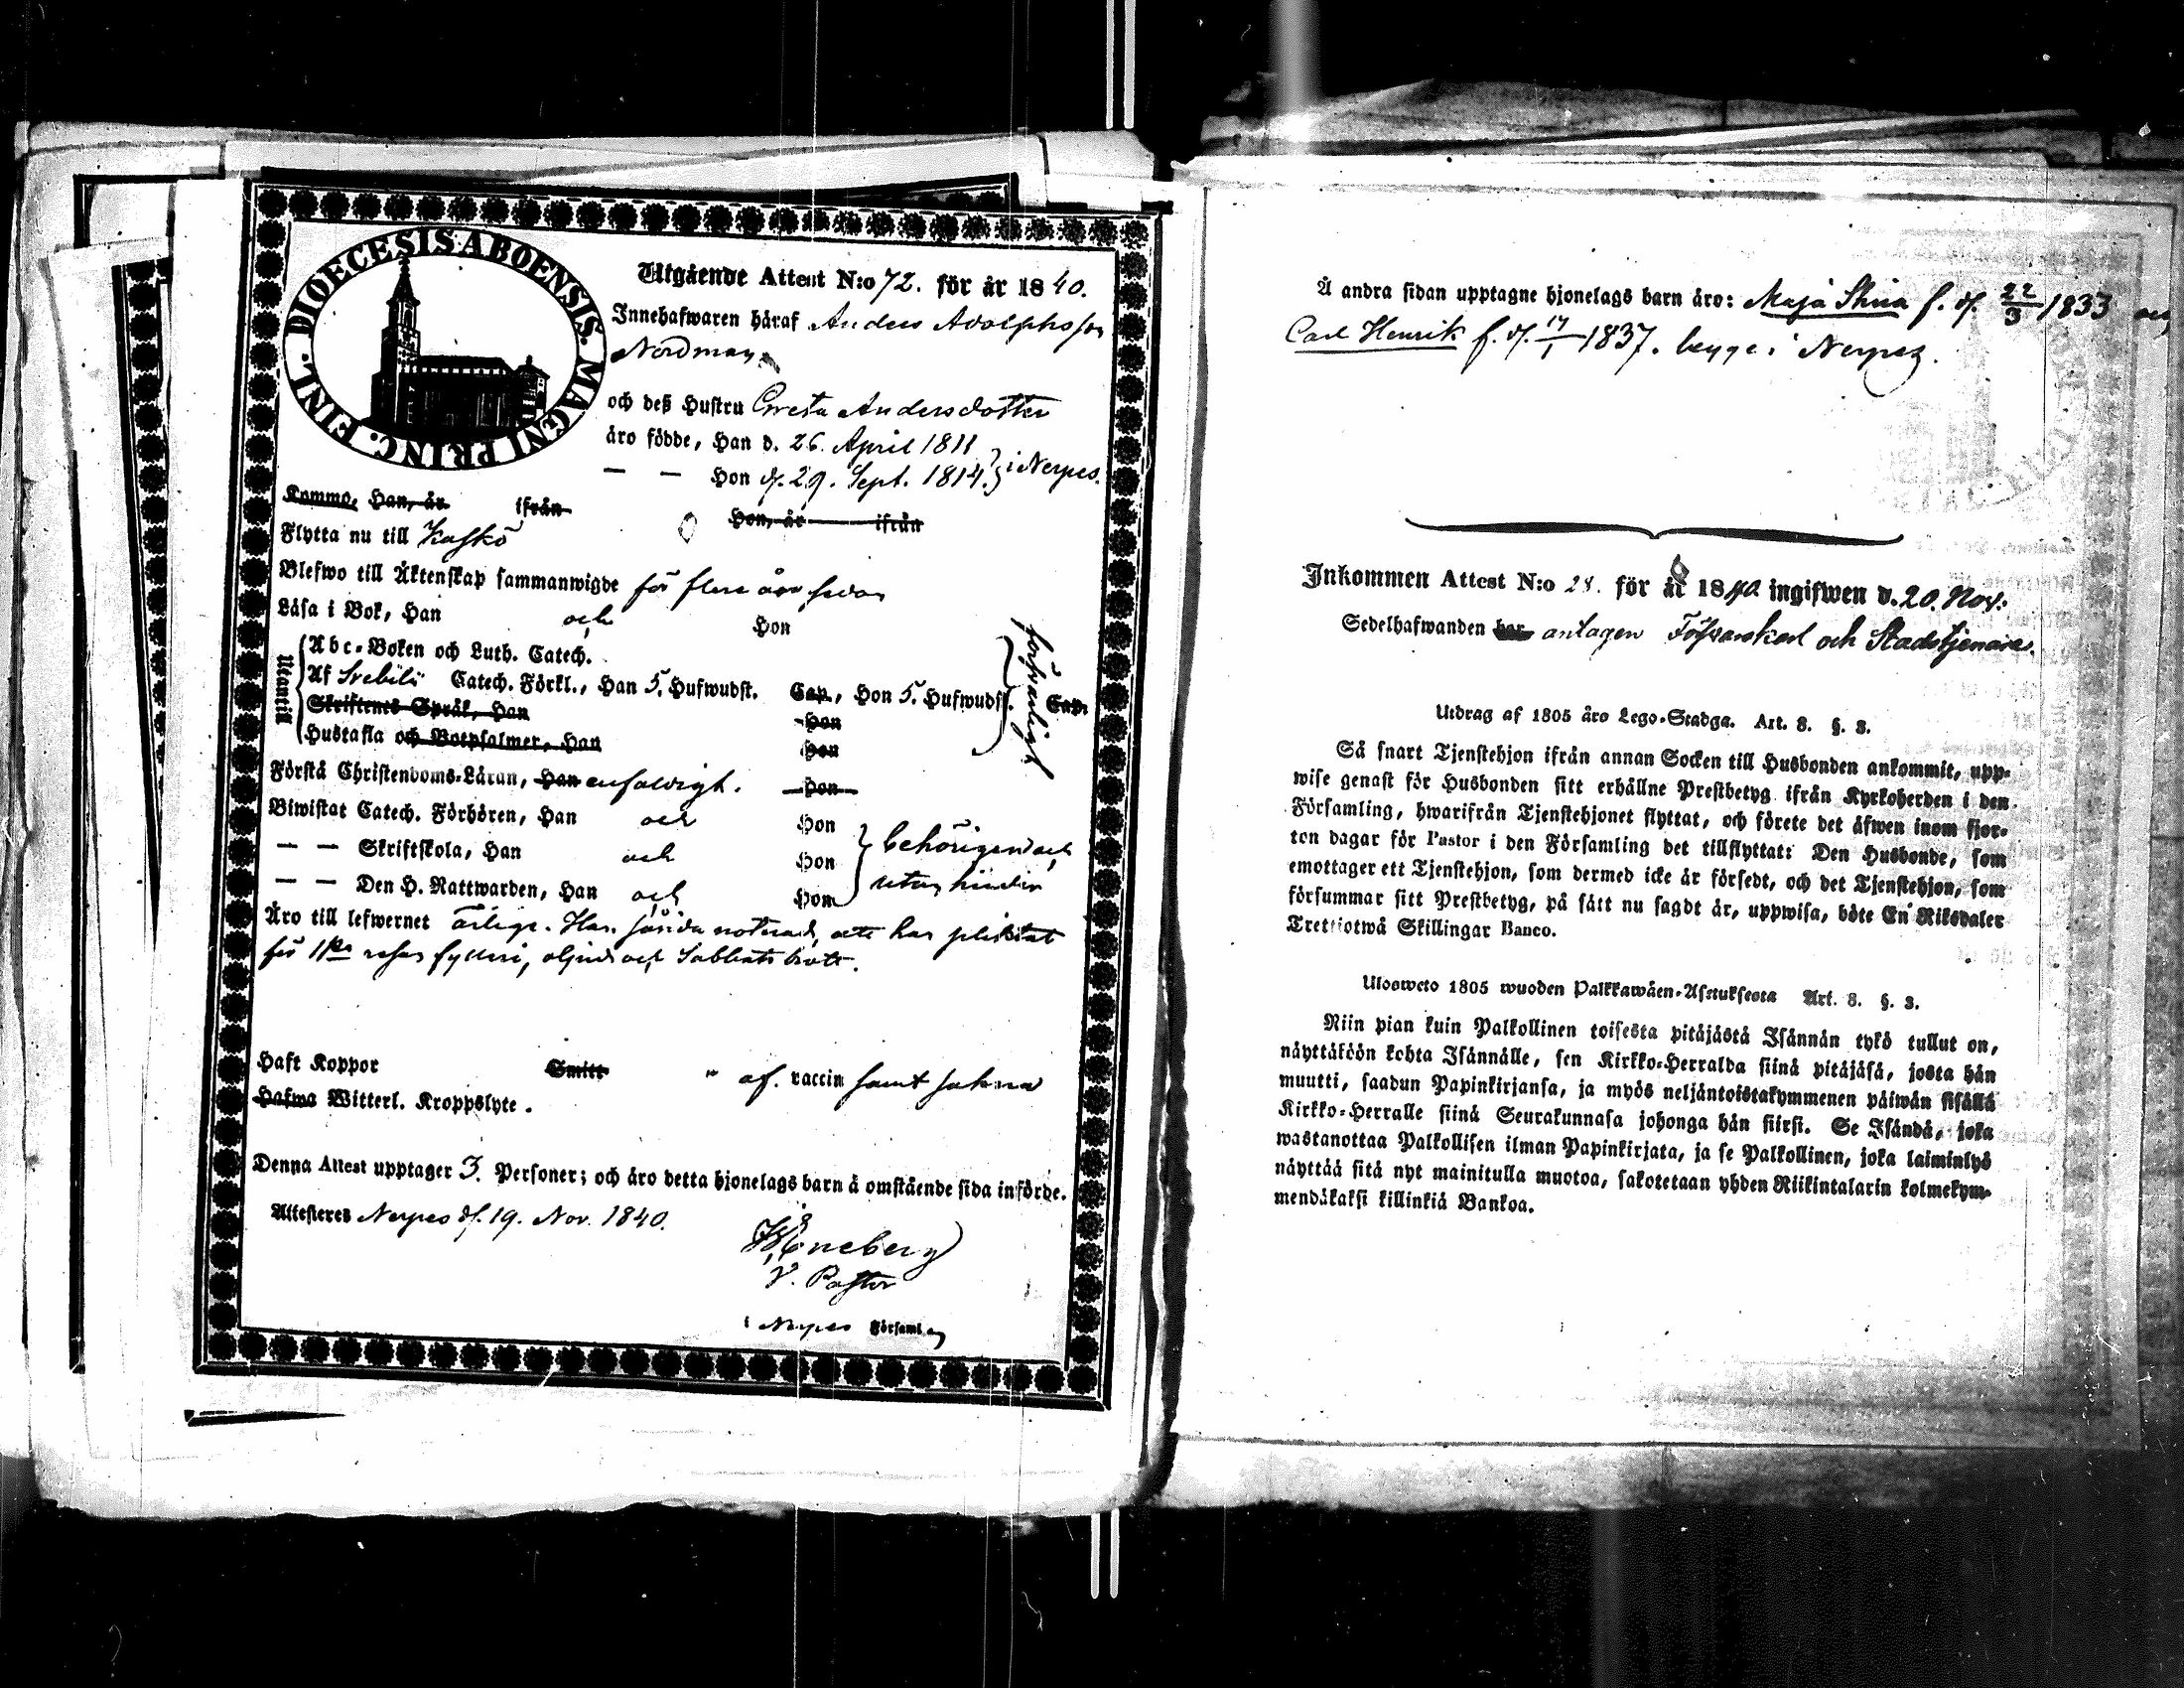 DIOECESIS ABOENSIS. MAGNI PRINC. FINL.
Utgående Attest N:o 72. för år 1840.
Innehafwaren häraf Anders Adolphsson
Nordman
och deß Hustru Greta Andersdotter
äro födde, Han d. 26. April 1811
— — Hon d. 29. Sept. 1814. } i Nerpes.
Komma, Han, år ifrån Hon, år ifrån
Flytta nu till Kaskö
Blefwo till Äktenskap sammanwigde för flere år sedan
Läsa i Bok, Han och Hon
Utantill
Abc-Boken och Luth. Catech.
Af Svebilii Catech. Förkl., Han 5. Hufwudst. Cap., Hon 5. Hufwudst. Cap.
Skriftenes Språk, Han Hon
Hustafla och Botpsalmer, Han Hon
försvarligt
Förstå Christendoms-Läran, Han enfaldigt. Hon
Biwistat Catech. Förhören, Han och Hon
— — Skriftskola, Han och Hon
— — Den H. Nattwarden, Han och Hon
behörigen och
utan hinder
Äro till lefwernet ärlige. Han, att han pliktat
för 1sta resan fylleri, oljud och Sabbatsbrott.
Haft Koppor Smitt af. vaccin samt
Hafwa Witterl. Kroppslyte.
Denna Attest upptager 3. Personer; och äro detta hjonelags barn å omstående sida införde.
Attesteres Nerpes d. 19. Nov. 1840.
Eneberg
V. Pastor
i Nerpes Församl.
Å andra sidan upptagne hjonelags barn äro: Maja Stina f. d. 22/3 1833 och
Carl Henrik f. d. 17/1 1837. begge i Nerpes.
Inkommen Attest N:o 28. för år 1840 ingifwen d. 20. Nov.
Sedelhafwanden har antagen och Stadstjenare.
Utdrag af 1805 åra Lego-Stadga. Art. 8. §. 3.
Så snart Tjenstehjon ifrån annan Socken till Husbonden ankommit, upp-
wise genast för Husbonden sitt erhållne Prestbetyg ifrån Kyrkoherden i den
Församling, hwarifrån Tjenstehjonet flyttat, och förete det äfwen inom fjor-
ton dagar för Pastor i den Församling det tillflyttat: Den Husbonde, som
emottager ett Tjenstehjon, som dermed icke är försedt, och det Tjenstehjon, som
försummar sitt Prestbetyg, på sätt nu sagdt är, uppwisa, böte En Riksdaler
Trettiotwå Skillingar Banco.
Ulosweto 1805 wuoden Palkkawäen-Asetuksesta Art. 8. §. 3.
Niin pian kuin Palkollinen toisesta pitäjästä Isännän tykö tullut on,
näyttäköön kohta Isännälle, sen Kirkko-Herralda siinä pitäjäsä, josta hän
muutti, saadun Papinkirjansa, ja myös neljäntoistakymmenen päiwän sisällä
Kirkko-Herralle siinä Seurakunnasa johonga hän siirsi. Se Isändä, joka
wastanottaa Palkollisen ilman Papinkirjata, ja se Palkollinen, joka laiminlyö
näyttää sitä nyt mainitulla muotoa, sakotetaan yhden Riikintalarin kolmekym-
mendäkaksi killinkiä Bankoa.